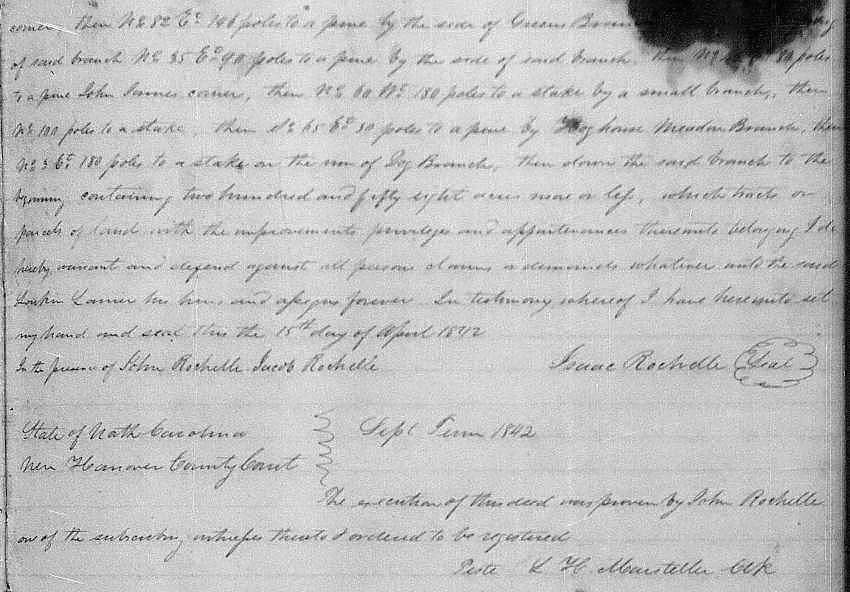 corner then No 82 Eo 146 poles to a pine by the side of Greens
of said branch No 35 Eo 90 poles to a pine by the side of said branch, then No 80 poles
to a pine John corner, then No 60 Wo 180 poles to a stake by a small branch, then
No 100 poles to a stake, then So 65 Eo 80 poles to a pine by Hog house Meadow Branch, then
No 3 Eo 180 poles to a stake on the run of Dog Branch, then down the said branch to the
begining containing two hundred and fifty eight acres more or less, which tracts or
parcels of land with the improvements priviliges and appurtenances thereunto belonging I do
hereby warrant and defend against all persons claims or demands whatever unto the said
Lanier his heirs and assigns forever In testimony whereof I have hereunto set
my hand and seal this the 15th day of April 1842
In the presence of John Rochelle Jacob Rochelle Isaac Rochelle (Seal)
State of North Carolina Sept Term 1842
New Hanover County Court
The execution of this deed was proven by John Rochelle
one of the subscribing witnesses thereto & ordered to be registered
Teste L H Marsteller Clk